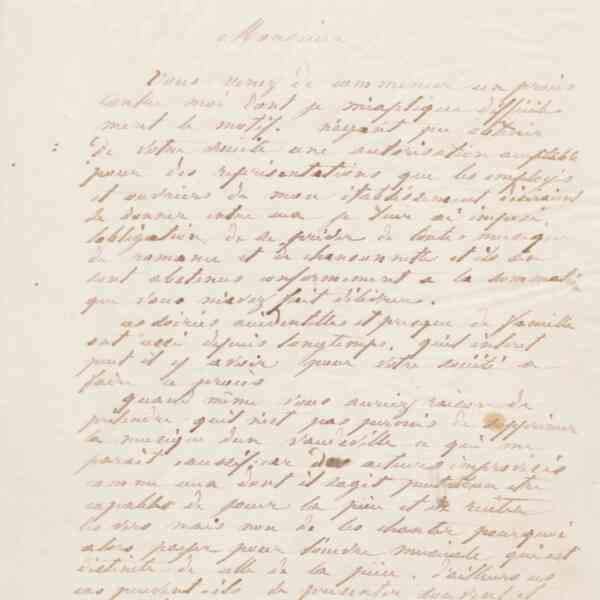 Monsieur
Vous venez de commencer un procès
contre moi dont je m'explique difficile
ment le motif. N'ayant pu obtenir
de votre société une autorisation acceptable
pour des représentations que les employés
et ouvriers de mon établissement désiraient
se donner entre eux je leur ai imposé
l'obligation de se priver de toute musique
de romance et de chansonnette et ils s'en
sont abstenus conformement a la sommation
que vous m'avez fait délivrer.
ces soirées accidentelles et presque de famille
ont cessé depuis longtemps. quel interet
peut il y avoir pour votre société a
faire ce procès
quand même vous auriez raison de
prétendre qu'il n'est pas permis de supprimer
la musique d'un vaudeville ce qui me
parait excessif car des acteurs improvisés
comme ceux dont il s'agit peuvent etre
capables de jouer la pièce et de réciter
les vers mais non de les chanter pourquoi
alors payer pour l'œuvre musicale qui est
distincte de celle de la pièce. d'ailleurs ces
cas peuvent-ils se présenter souvent et